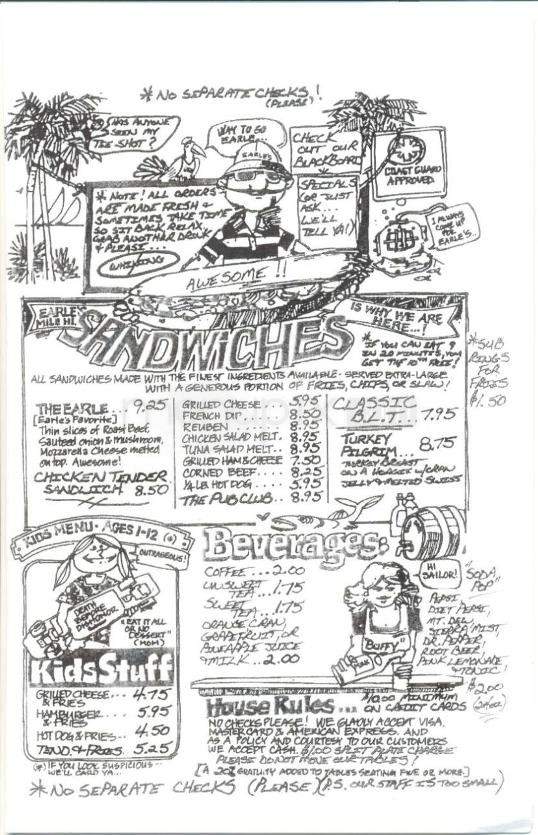 * NO SEPARATE CHECKS!
(PLEASE)
HAS ANYONE
SEEN MY
TEE SHOT?
WAY TO GO
EARLE...
EARLES
CHECK
OUT OUR
BLACKBOARD
SPECIALS
(OR JUST
ASK...
WE'LL
TELL YA!)
COAST GUARD
APPROVED
I ALWAYS
COME UP
FOR
EARLE'S.
* NOTE! ALL ORDERS
ARE MADE FRESH &
SOMETIMES TAKE TIME
SO SIT BACK, RELAX
GRAB ANOTHER DRINK
& PLEASE...
NO
WHINING
AWESOME!!
EARLE'S
MILE HI
SANDWICHES
IS WHY WE ARE
HERE...!
* IF YOU CAN EAT 9
IN 20 MINUTES, YOU
GET THE 10TH FREE!
*SUB
RINGS
FOR
FRIES
$1.50
ALL SANDWICHES MADE WITH THE FINEST INGREDIENTS AVAILABLE - SERVED EXTRA-LARGE
WITH A GENEROUS PORTION OF FRIES, CHIPS, OR SLAW!
THE EARLE... 9.25
[Earle's Favorite]
Thin slices of Roast Beef,
Sauteed onion & Mushroom,
Mozzarella Cheese melted
on top. Awesome!
CHICKEN TENDER
SANDWICH 8.50
GRILLED CHEESE... 5.95
FRENCH DIP... 8.50
REUBEN... 8.95
CHICKEN SALAD MELT.. 8.95
TUNA SALAD MELT.. 8.95
GRILLED HAM & CHEESE 7.50
CORNED BEEF... 8.25
1/4 LB HOT DOG.... 5.95
THE PUB CLUB.. 8.95
CLASSIC
B.L.T... 7.95
TURKEY
PILGRIM... 8.75
TURKEY BREAST
ON A HOAGIE W/CRAN
JELLY & MELTED SWISS
KIDS MENU - AGES 1-12 (*)
OUTRAGEOUS!
DEATH
BEFORE
DISHONOR
"EAT IT ALL
OR NO
DESSERT"
(MOM)
Kids Stuff
GRILLED CHEESE... 4.75
& FRIES
HAMBURGER... 5.95
& FRIES
HOT DOG & FRIES... 4.50
TEND. & FRIES. 5.25
(*) IF YOU LOOK SUSPICIOUS --
WE'LL CARD YA...
Beverages:
COFFEE... 2.00
UNSWEET
TEA... 1.75
SWEET
TEA... 1.75
ORANGE, CRAN,
GRAPEFRUIT, OR
PINEAPPLE JUICE
& MILK... 2.00
HI
SAILOR!
"BUFFY"
"SODA
POP"
PEPSI
DIET PEPSI,
MT. DEW,
SIERRA MIST,
DR. PEPPER
ROOT BEER,
PINK LEMONADE
& TONIC!
$2.00
House Rules...
$10.00 MINIMUM
ON CREDIT CARDS
NO CHECKS PLEASE! WE GLADLY ACCEPT VISA,
MASTERCARD & AMERICAN EXPRESS. AND
AS A POLICY AND COURTESY TO OUR CUSTOMERS
WE ACCEPT CASH. $1.00 SPLIT PLATE CHARGE
PLEASE DO NOT MOVE OUR TABLES!
[A 20% GRATUITY ADDED TO TABLES SEATING FIVE OR MORE.]
* NO SEPARATE CHECKS (PLEASE) (P.S. OUR STAFF IS TOO SMALL)